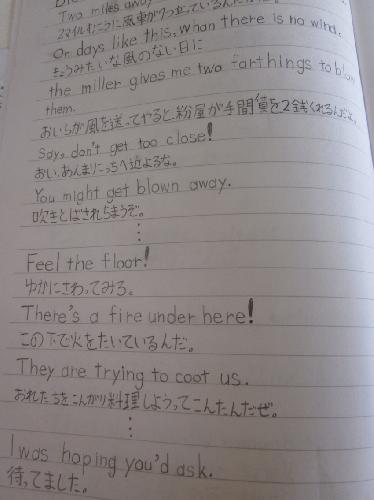 Two miles away
2マイルむこうに風車が7つ立っているんだ
On days like this, when there is no wind,
きょうみたいな風のない日に
the miller gives me two farthings to blow
them.
おいらが風を送ってやると、粉屋が手間賃を2銭くれるんだよ。
Say, don't get too close!
おい、あんまりこっちへ近よるな。
You might get blown away.
吹きとばされちまうぞ。
⋮
Feel the floor!
ゆかにさわってみろ。
There's a fire under here!
この下で火をたいているんだ。
They are trying to coot us.
おれたちをこんがり料理しようってこんたんだぜ。
⋮
I was hoping you'd ask.
待ってました。